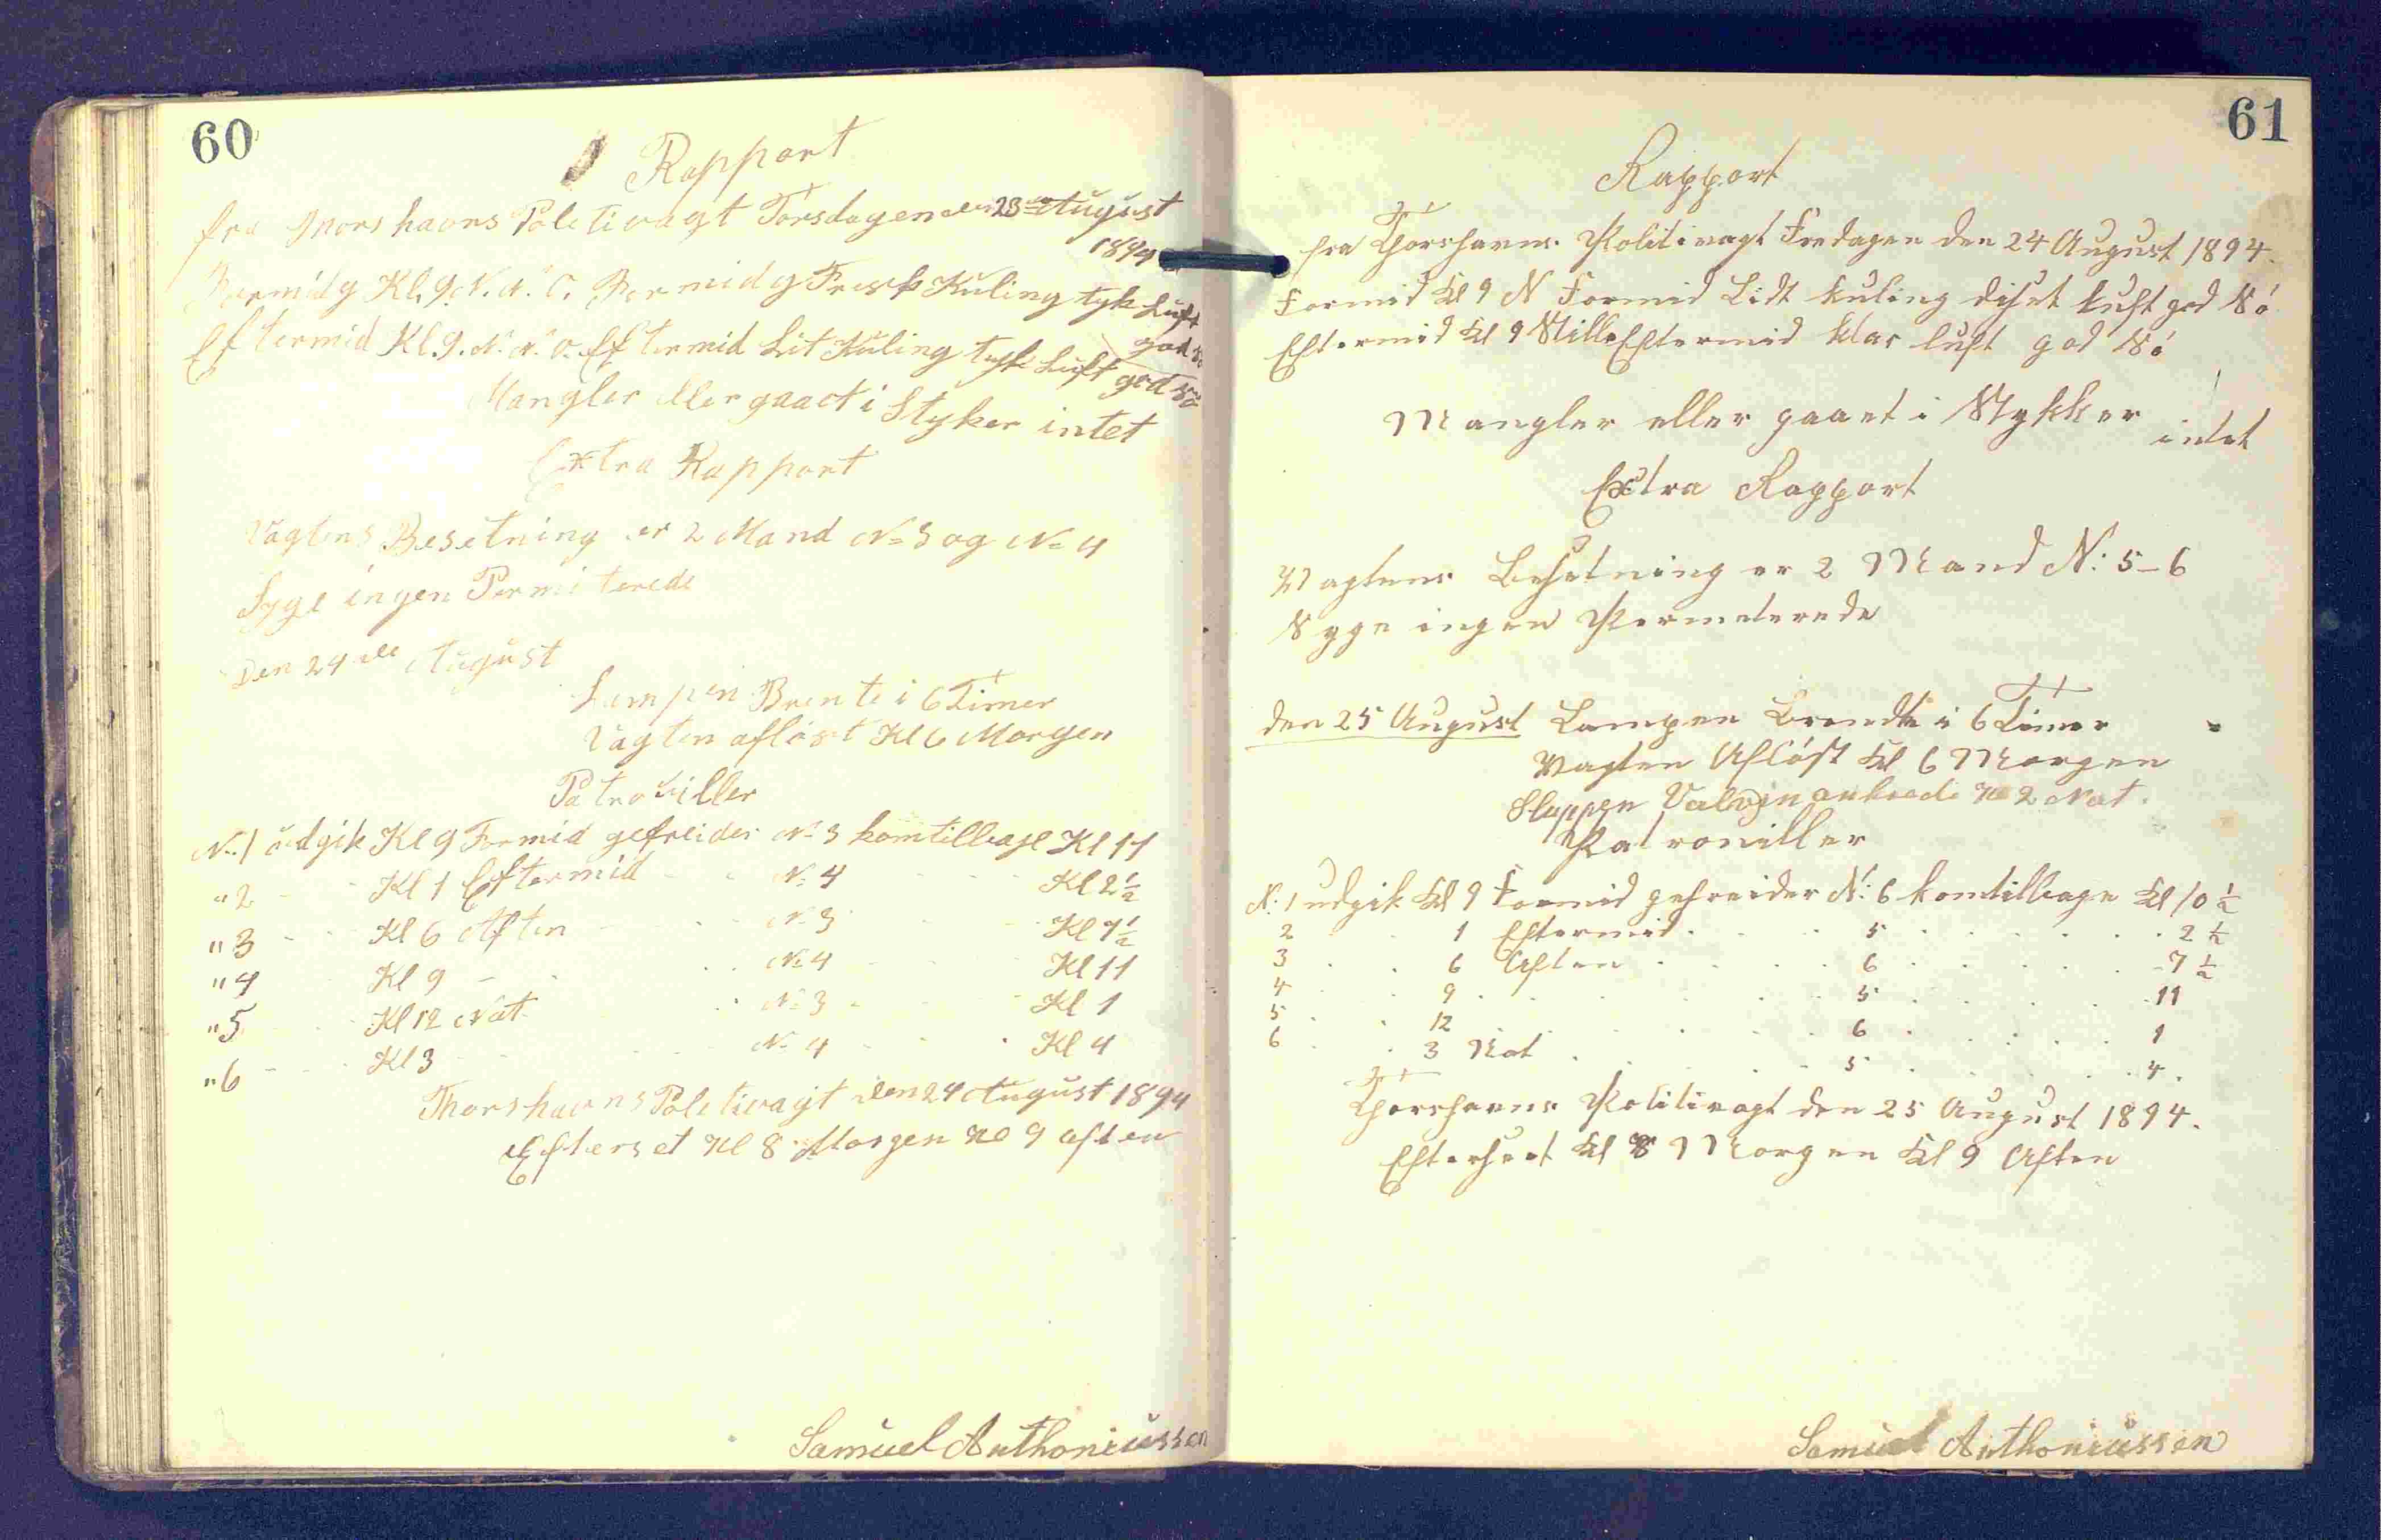 60
Rapport
fra Thorshavns Poletivagt Torsdagen den 23de August
1894
Formidg Kl. 9. N. N. O. Formidg Fresk Kuling tyk Luft
god Sö
Eftermid Kl. 9. N. N. O. Eftermid Lit Kuling tyk Luft god Sö
Mangler eller gaaet i Styker intet
Extra Rapport
Vagtens Besetning er 2 Mand No 3 og No 4
Syge ingen Permiterede
Den 24de August
Lampen Brente i 6 Timer
Vagten aflöst Kl 6 Morgen
Patroviller
No. 1 udgik Kl 9 Formid gefreider No 3 kom tilbage Kl 11
"2 - - Kl 1 Eftermid - - No 4 - - Kl 2 1/2
"3 - - Kl 6 Aften - - No 3 - - Kl 7 1/2
"4 - - Kl 9 - - - No 4 - - Kl 11
"5 - - Kl 12 Nat - - No 3 - - Kl 1
"6 - - Kl 3 - - - No 4 - - Kl 4
Thorshavns Poletivagt den 24 August 1894
Efterset Kl 8 Morgen Kl 9 aften
Samuel Anthoniussen
61
Rapport
fra Thorshavns Politivagt Fredagen den 24 August 1894.
Formid Kl 9 N Formid Lidt kuling diset luft god Sö
Eftermid Kl 9 Stille Eftermid klar luft god Sö
Mangler eller gaaet i Stykker intet
Extra Rapport
Vagtens Besetning er 2 Mand N: 5-6
Syge ingen Permeterede
den 25 August Lampen Brendte i 6 Timer
Vagten Aflöst Kl 6 Morgen
Sluppen ankrede Kl 2 Nat.
Patroviller
N: 1 udgik Kl 9 Formid gefreider N: 6 kom tilbage Kl 10 1/2
2 . . 1 Eftermid . . 5 . . 2 1/2
3 . . 6 Aften . . 6 . . 7 1/2
4 . . 9 . . . 5 . . 11
5 . . 12 . . . 6 . . 1
6 . . 3 Nat . . 5 . . 4.
Thorshavns Politivagt den 25 August 1894.
Efterseet Kl 8 Morgen Kl 9 Aften
Samuel Anthoniussen